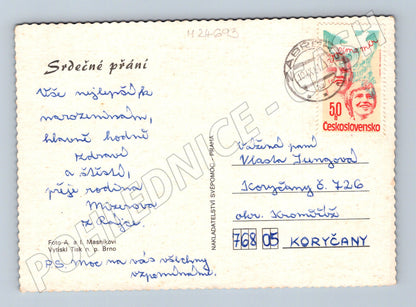 M24693
Srdečné přání
Vše nejlepší k
narozeninám,
hlavně hodně
zdraví
a štěstí,
přeje rodina
z Rájce
Foto A. a I. Maskikovi
Vytiskl Tisk n. p. Brno
PS. Moc na vás všechny
vzpomínáme.
NAKLADATELSTVÍ SVÉPOMOC - PRAHA
ZÁBŘEH
50
Československo
Vážená paní
Vlasta Jungová
Koryčany č. 726
okr. Kroměříž
768 05 KORYČANY
POHLEDNICE -